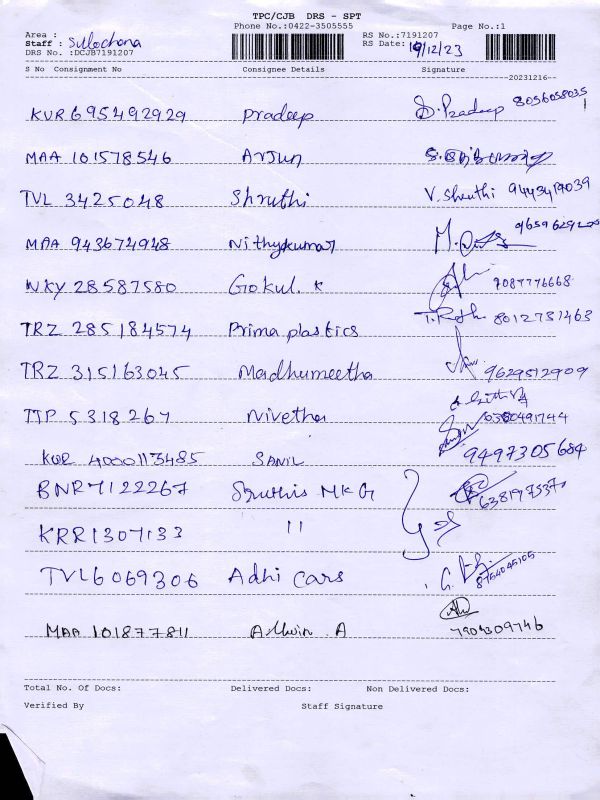 TPC/CJB DRS - SPT
Phone No.:0422-3505555 Page No.:1
Area : RS No.:7191207
Staff : Sulochana RS Date: 19/12/23
DRS No. :DCJB7191207
S No Consignment No Consignee Details Signature
20231216
KUR 695492929 Pradeep D. Pradeep 8056058035
MAA 101578546 Arjun
TVL 3425048 Shruthi V. Shruthi 9443419039
MAA 943674948 Nithykumar
NKY 28587580 Gokul. K 7087776668
TRZ 285184574 Prima plastics 8012731463
TRZ 315163045 Madhumeetha 9629512909
TTP 5318267 Nivetha
KUR 4000113485 SANIL 9497305684
BNR7122267 Sruthis MKG
KRR1307133 11
TVL6069306 Adhi cars 8754045105
MAA 101877811 Allwin. A 7904309746
Total No. Of Docs: Delivered Docs: Non Delivered Docs:
Verified By Staff Signature